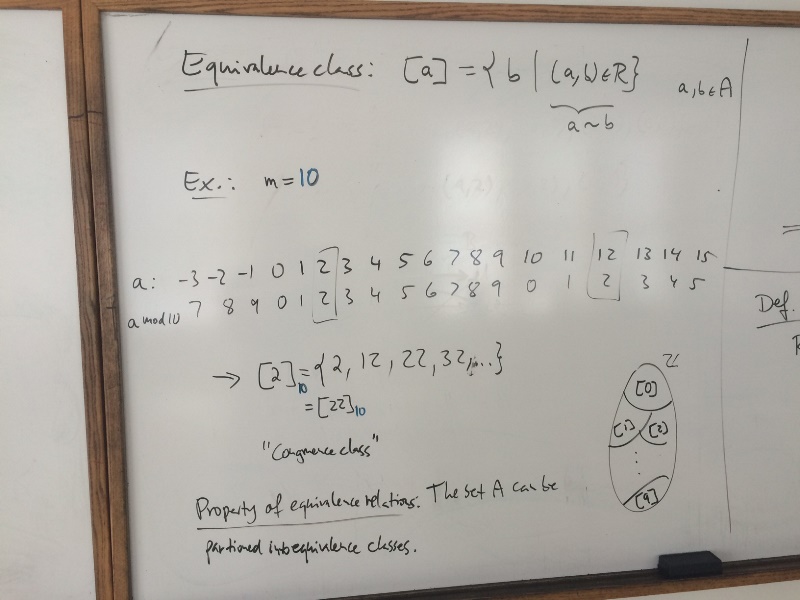 Equivalence class: [a] = { b | (a,b) ∈ R }
a ~ b
a, b ∈ A
Ex.: m = 10
a: -3 -2 -1 0 1 2 3 4 5 6 7 8 9 10 11 12 13 14 15
a mod 10 7 8 9 0 1 2 3 4 5 6 7 8 9 0 1 2 3 4 5
→ [2]₁₀ = {2, 12, 22, 32, ...}
= [22]₁₀
"Congruence class"
Z
[0]
[1] [2]
⋮
[9]
Property of equivalence relations: The set A can be
partioned into equivalence classes.
Def.